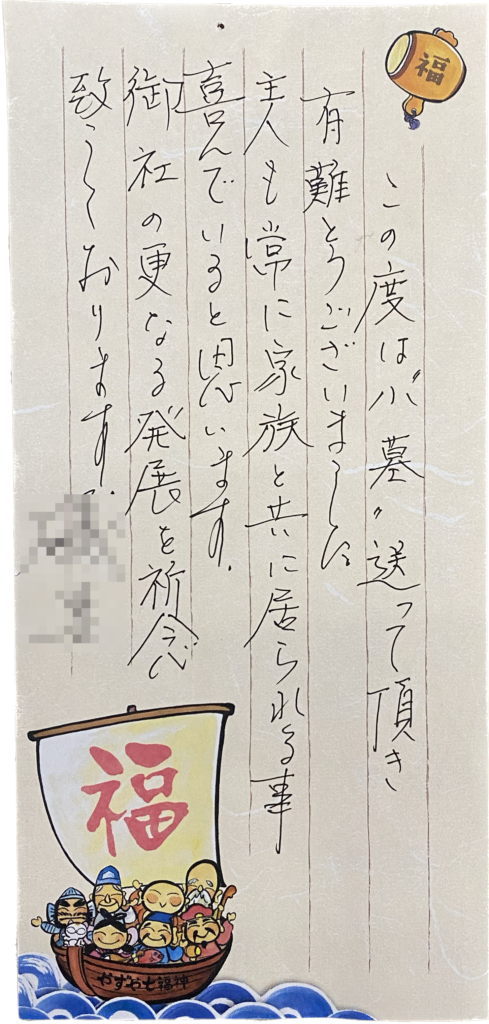 福
この度は〃小墓〃送って頂き
有難とうございました
主人も常に家族と共に居られる事
喜んでいると思います。
御社の更なる発展を祈念
致しております。
福
やずや七福神